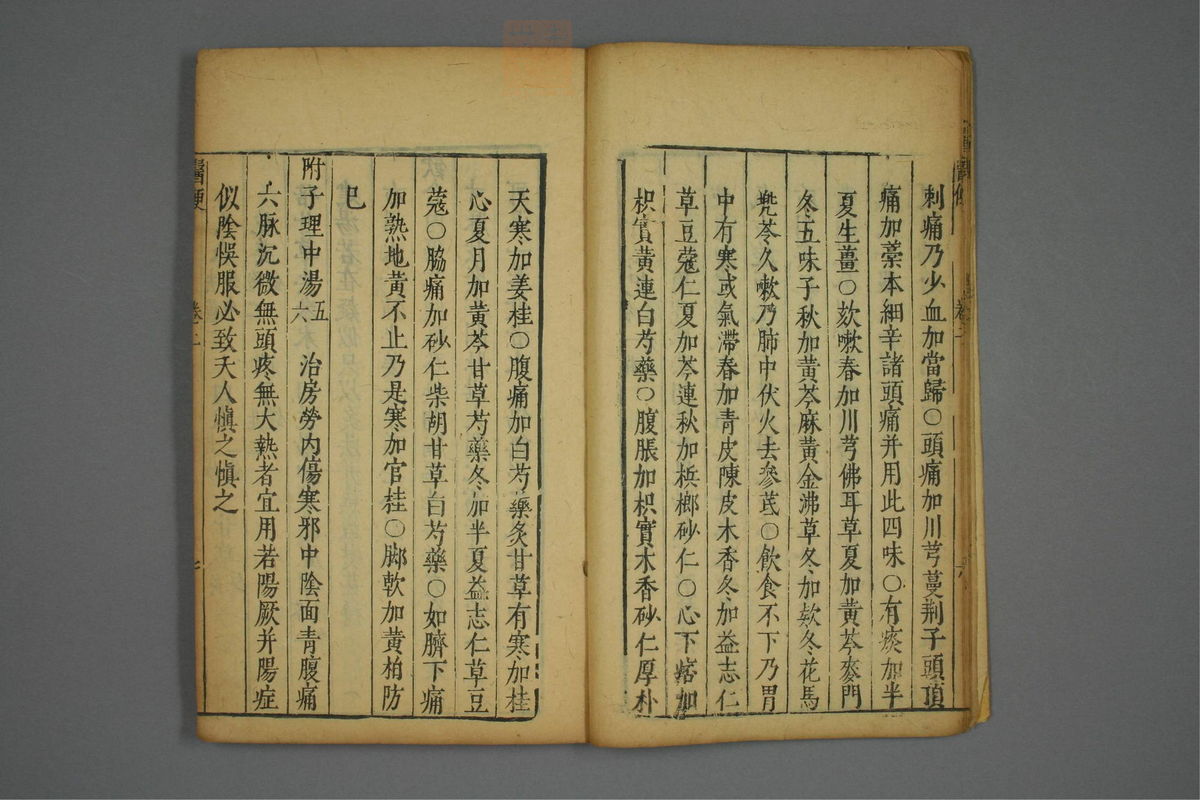 刺痛乃少血加當歸〇頭痛加川芎蔓荆子頭頂
痛加藁本細辛諸頭痛并用此四味〇有痰加半
夏生薑〇欬嗽春加川芎佛耳草夏加黃芩麥門
冬五味子秋加黃芩麻黃金沸草冬加欵冬花馬
兠苓久嗽乃肺中伏火去參芪〇飲食不下乃胃
中有寒或氣滯春加青皮陳皮木香冬加益志仁
草豆蔻仁夏加芩連秋加梹榔砂仁〇心下痞加
枳實黃連白芍藥〇腹脹加枳實木香砂仁厚朴
天寒加姜桂〇腹痛加白芍藥炙甘草有寒加桂
心夏月加黃芩甘草芍藥冬加半夏益志仁草豆
蔻〇脇痛加砂仁柴胡甘草白芍藥〇如臍下痛
加熟地黃不止乃是寒加官桂〇脚軟加黃柏防
巳
附子理中湯五六 治房勞内傷寒邪中陰面青腹痛
六脉沉微無頭疼無大熱者宜用若陽厥并陽症
似陰悞服必致夭人慎之慎之
醫便 卷二